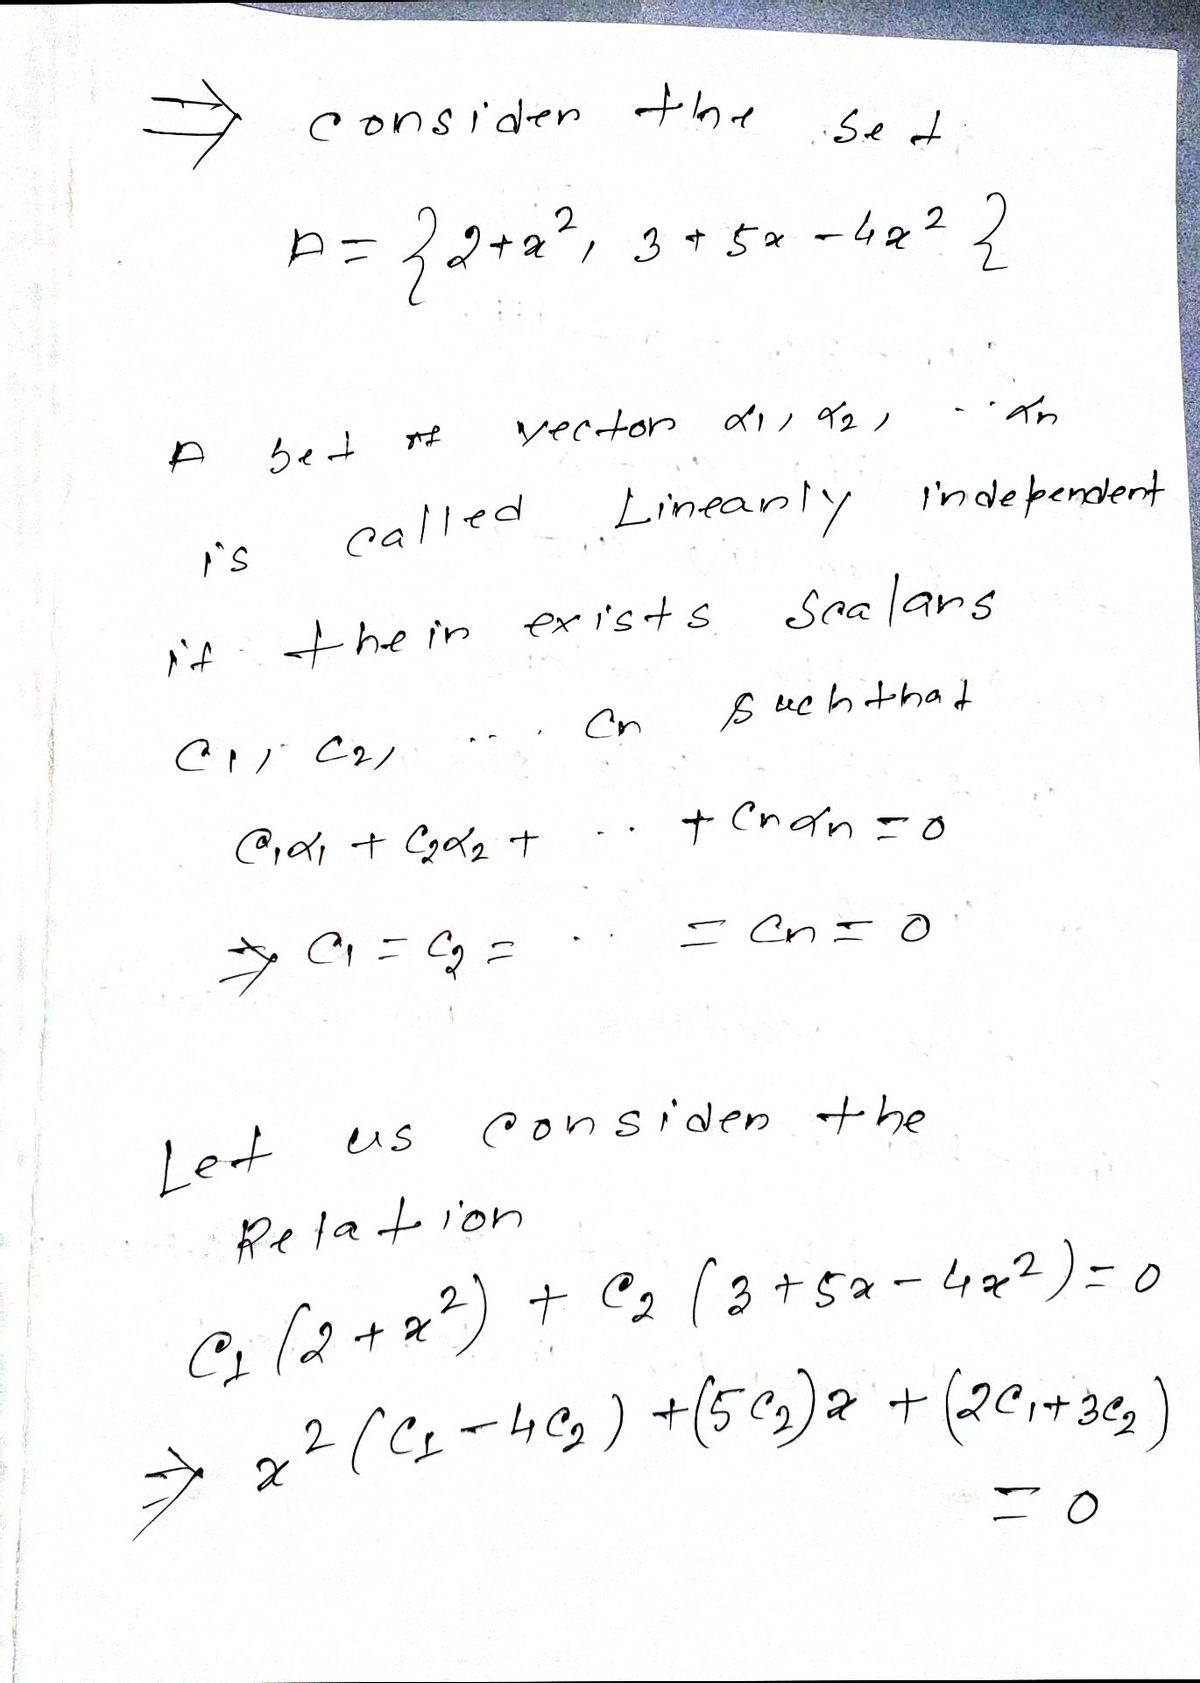 ⇒ consider the set
A = { 2+x², 3 + 5x - 4x² }
A set of vector α₁, α₂, ... αn
is called Linearly independent
if their exists scalars
C₁, C₂, ... Cn such that
C₁α₁ + C₂α₂ + .. + Cnαn = 0
⇒ C₁ = C₂ = .. = Cn = 0
Let us consider the
Relation
C₁(2 + x²) + C₂(3 + 5x - 4x²) = 0
⇒ x²(C₁ - 4C₂) + (5C₂)x + (2C₁+3C₂)
= 0